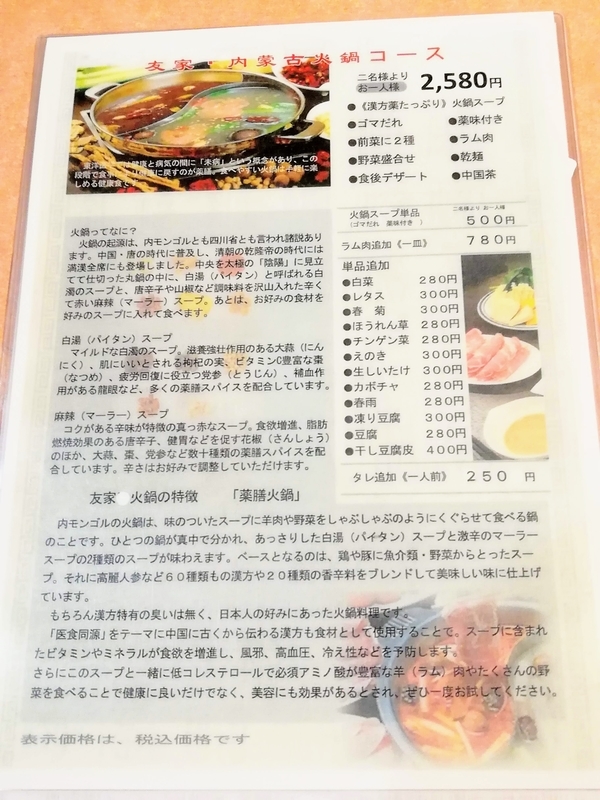 友家・内蒙古火鍋コース
二名様より
お一人様 2,580円
●《漢方薬たっぷり》火鍋スープ
●ゴマだれ ●薬味付き
●前菜に2種 ●ラム肉
●野菜盛合せ ●乾麺
●食後デザート ●中国茶
健康と病気の間に「未病」という概念があり、この
しめる健康食です
火鍋スープ単品 二名様より お一人様
(ゴマだれ 薬味付き) 500円
ラム肉追加《一皿》 780円
単品追加
●白菜 280円
●レタス 300円
●春 菊 300円
●ほうれん草 280円
●チンゲン菜 280円
●えのき 300円
●生しいたけ 300円
●カボチャ 280円
●春雨 280円
●凍り豆腐 300円
●豆腐 280円
●干し豆腐皮 400円
タレ追加《一人前》 250 円
火鍋ってなに?
火鍋の起源は、内モンゴルとも四川省とも言われ諸説あり
ます。中国・唐の時代に普及し、清朝の乾隆帝の時代には
満漢全席にも登場しました。中央を太極の「陰陽」に見立
てて仕切った丸鍋の中に、白湯(パイタン)と呼ばれる白
濁のスープと、唐辛子や山椒など調味料を沢山入れた辛く
て赤い麻辣(マーラー)スープ。あとは、お好みの食材を
好みのスープに入れて食べます。
白湯(パイタン)スープ
マイルドな白濁のスープ。滋養強壮作用のある大蒜(にん
にく)、肌にいいとされる枸杞の実、ビタミンC豊富な棗
(なつめ)、疲労回復に役立つ党参(とうじん)、補血作
用がある龍眼など、多くの薬膳スパイスを配合しています。
麻辣(マーラー)スープ
コクがある辛味が特徴の真っ赤なスープ。食欲増進、脂肪
燃焼効果のある唐辛子、健胃などを促す花椒(さんしょう)
のほか、大蒜、棗、党参など数十種類の薬膳スパイスを配
合しています。辛さはお好みで調整していただけます。
友家 火鍋の特徴 「薬膳火鍋」
内モンゴルの火鍋は、味のついたスープに羊肉や野菜をしゃぶしゃぶのようにくぐらせて食べる鍋
のことです。ひとつの鍋が真中で分かれ、あっさりした白湯(パイタン)スープと激辛のマーラー
スープの2種類のスープが味わえます。ベースとなるのは、鶏や豚に魚介類・野菜からとったスー
プ。それに高麗人参など60種類もの漢方や20種類の香辛料をブレンドして美味しい味に仕上げ
ています。
もちろん漢方特有の臭いは無く、日本人の好みにあった火鍋料理です。
「医食同源」をテーマに中国に古くから伝わる漢方も食材として使用することで。スープに含まれ
たビタミンやミネラルが食欲を増進し、風邪、高血圧、冷え性などを予防します。
さらにこのスープと一緒に低コレステロールで必須アミノ酸が豊富な羊(ラム)肉やたくさんの野
菜を食べることで健康に良いだけでなく、美容にも効果があるとされ、ぜひ一度お試してください。
表示価格は、税込価格です